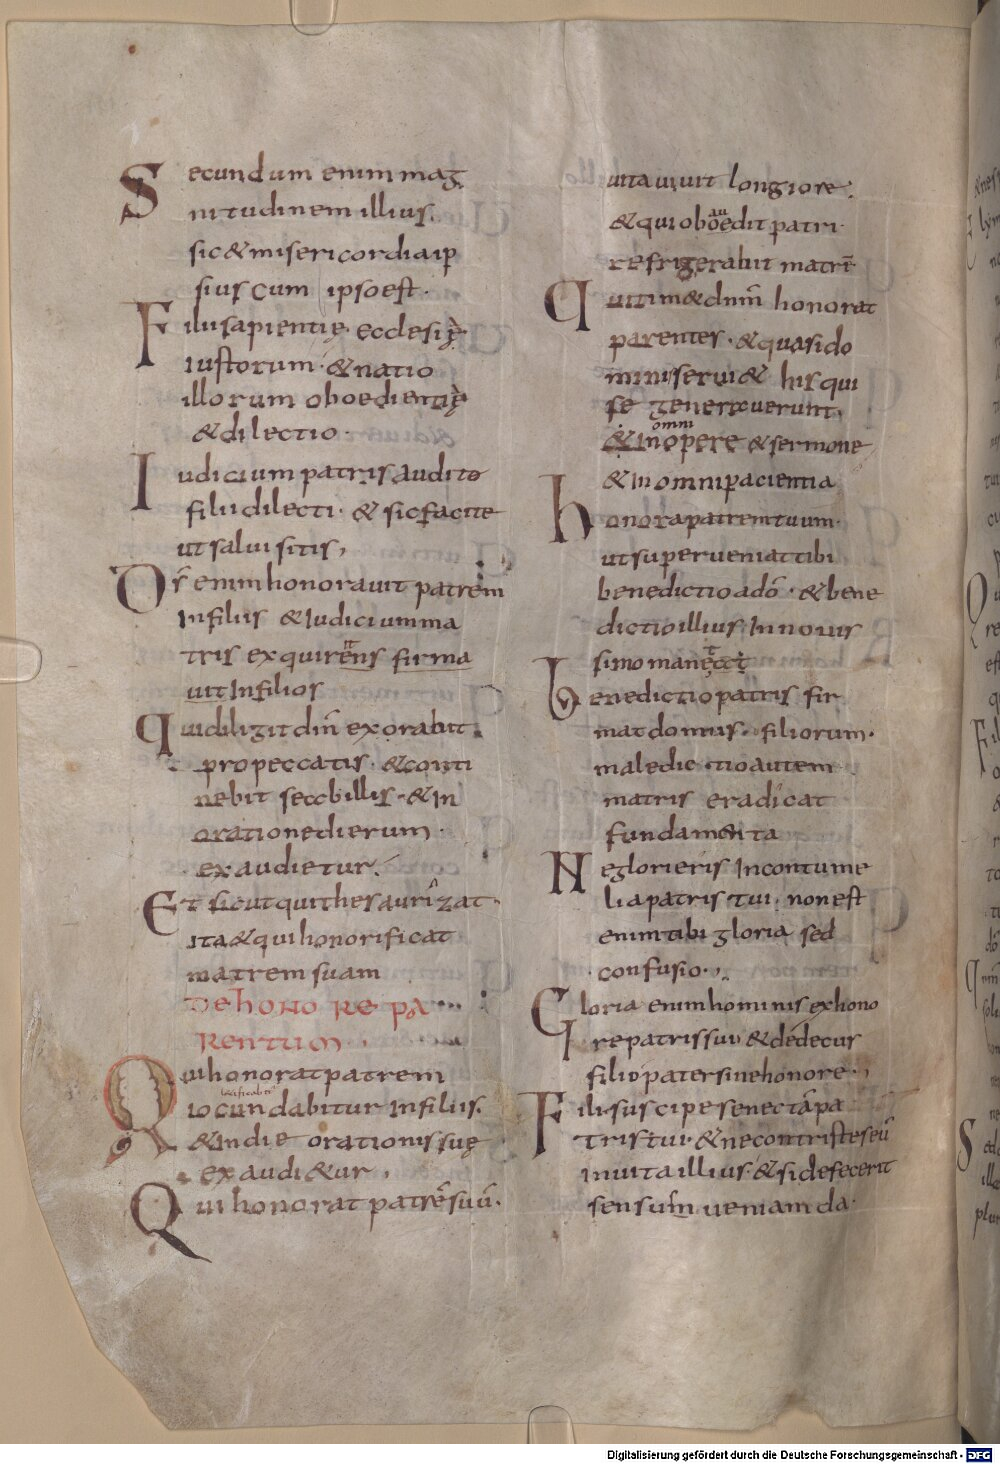 Secundum enim mag
nitudinem illius.
sic & misericordia ip
sius cum ipso est.
Filii sapientię. ecclesię.
iustorum. & natio
illorum oboedientię
& dilectio.
Iudicium patris audite
filii dilecti. & sic facite
ut salui sitis,
Ds̄ enim honorauit patrem
In filiis & Iudicium ma
tris exquirens firma
uit In filios
Qui diligit dm̄ exorabit
pro peccatis. & conti
nebit se ab illis. & In
oratione dierum.
exaudietur.
Et sicut qui thesaurizat.
ita & qui honorificat
matrem suam
De honore pa
rentum
Qui honorat patrem
iocundabitur In filiis.
& In die orationis suę
exaudi&ur,
Qui honorat patrē suū.
uita uiuit longiore.
& qui oboedit patri.
refrigerabit matrē
Qui tim& dnm̄ honorat
parentes. & quasi do
minis serui& his qui
se generauerunt.
omni
& In opere & sermone
& In omni pacientia
honora patrem tuum.
ut superueniat tibi
benedictio a dō. & bene
dictio illius. In nouis
simo maneat
benedictio patris fir
mat domus. filiorum.
maledictio autem
matris eradicat
fundamenta
Ne glorieris In contume
lia patris tui. non est
enim tibi gloria sed
confusio.,
Gloria enim hominis ex hono
re patris sui & dedecus
filio pater sine honore.,
Fili suscipe senectā pa
tris tui. & ne contristes eū
in uita illius. & si defecerit
sensum ueniam da.
Digitalisierung gefördert durch die Deutsche Forschungsgemeinschaft - DFG